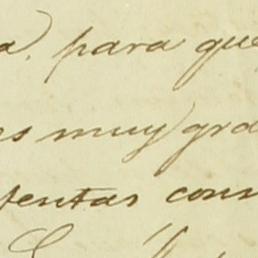 a. para que
es muy gra
tentas con